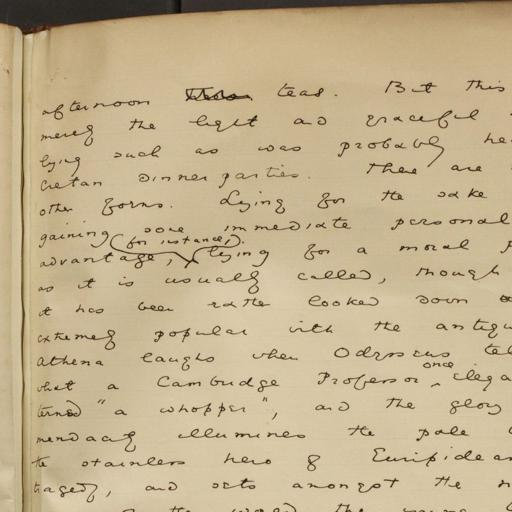 afternoon teas. But this
merely the light and graceful
lying such as was probably he
Cretan dinner parties. There are
other forms. Lying for the sake
gaining some immediate personal
(for instance),
advantage, lying for a moral
as it is usually called, though
it has been rather looked down
extremely popular with the antiqu
Athena laughs when Odysseus tel
once
what a Cambridge Professor elega
termed "a whopper", and the glory
mendacity illumines the pale
the stainless hero of Euripidean
tragedy, and sets amongst the n
the young